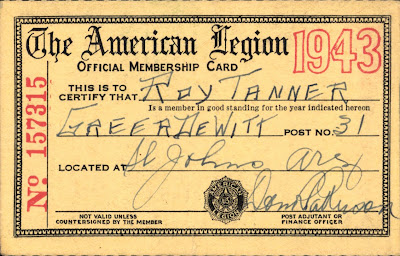 The American Legion
1943
OFFICIAL MEMBERSHIP CARD
THIS IS TO
CERTIFY THAT ROY TANNER
Is a member in good standing for the year indicated hereon
GREER HEWITT POST NO. 31
LOCATED AT St Johns Ariz
No 157315
NOT VALID UNLESS
COUNTERSIGNED BY THE MEMBER
POST ADJUTANT OR
FINANCE OFFICER